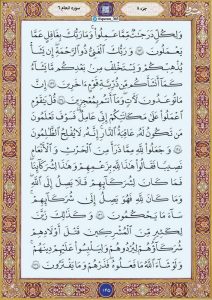 جزء ۸
سوره انعام ۶
وَلِكُلٍّ دَرَجَٰتٌ مِّمَّا عَمِلُوا۟ وَمَا رَبُّكَ بِغَٰفِلٍ عَمَّا
يَعْمَلُونَ ١٣٢ وَرَبُّكَ ٱلْغَنِىُّ ذُو ٱلرَّحْمَةِ إِن يَشَأْ
يُذْهِبْكُمْ وَيَسْتَخْلِفْ مِنۢ بَعْدِكُم مَّا يَشَآءُ
كَمَآ أَنشَأَكُم مِّن ذُرِّيَّةِ قَوْمٍ ءَاخَرِينَ ١٣٣ إِنَّ
مَا تُوعَدُونَ لَءَاتٍ وَمَآ أَنتُم بِمُعْجِزِينَ ١٣٤ قُلْ يَٰقَوْمِ
ٱعْمَلُوا۟ عَلَىٰ مَكَانَتِكُمْ إِنِّى عَامِلٌ فَسَوْفَ تَعْلَمُونَ
مَن تَكُونُ لَهُۥ عَٰقِبَةُ ٱلدَّارِ إِنَّهُۥ لَا يُفْلِحُ ٱلظَّٰلِمُونَ
١٣٥ وَجَعَلُوا۟ لِلَّهِ مِمَّا ذَرَأَ مِنَ ٱلْحَرْثِ وَٱلْأَنْعَٰمِ
نَصِيبًا فَقَالُوا۟ هَٰذَا لِلَّهِ بِزَعْمِهِمْ وَهَٰذَا لِشُرَكَآئِنَا
فَمَا كَانَ لِشُرَكَآئِهِمْ فَلَا يَصِلُ إِلَى ٱللَّهِ
وَمَا كَانَ لِلَّهِ فَهُوَ يَصِلُ إِلَىٰ شُرَكَآئِهِمْ
سَآءَ مَا يَحْكُمُونَ ١٣٦ وَكَذَٰلِكَ زَيَّنَ
لِكَثِيرٍ مِّنَ ٱلْمُشْرِكِينَ قَتْلَ أَوْلَٰدِهِمْ
شُرَكَآؤُهُمْ لِيُرْدُوهُمْ وَلِيَلْبِسُوا۟ عَلَيْهِمْ دِينَهُمْ
وَلَوْ شَآءَ ٱللَّهُ مَا فَعَلُوهُ فَذَرْهُمْ وَمَا يَفْتَرُونَ ١٣٧
١٤٥